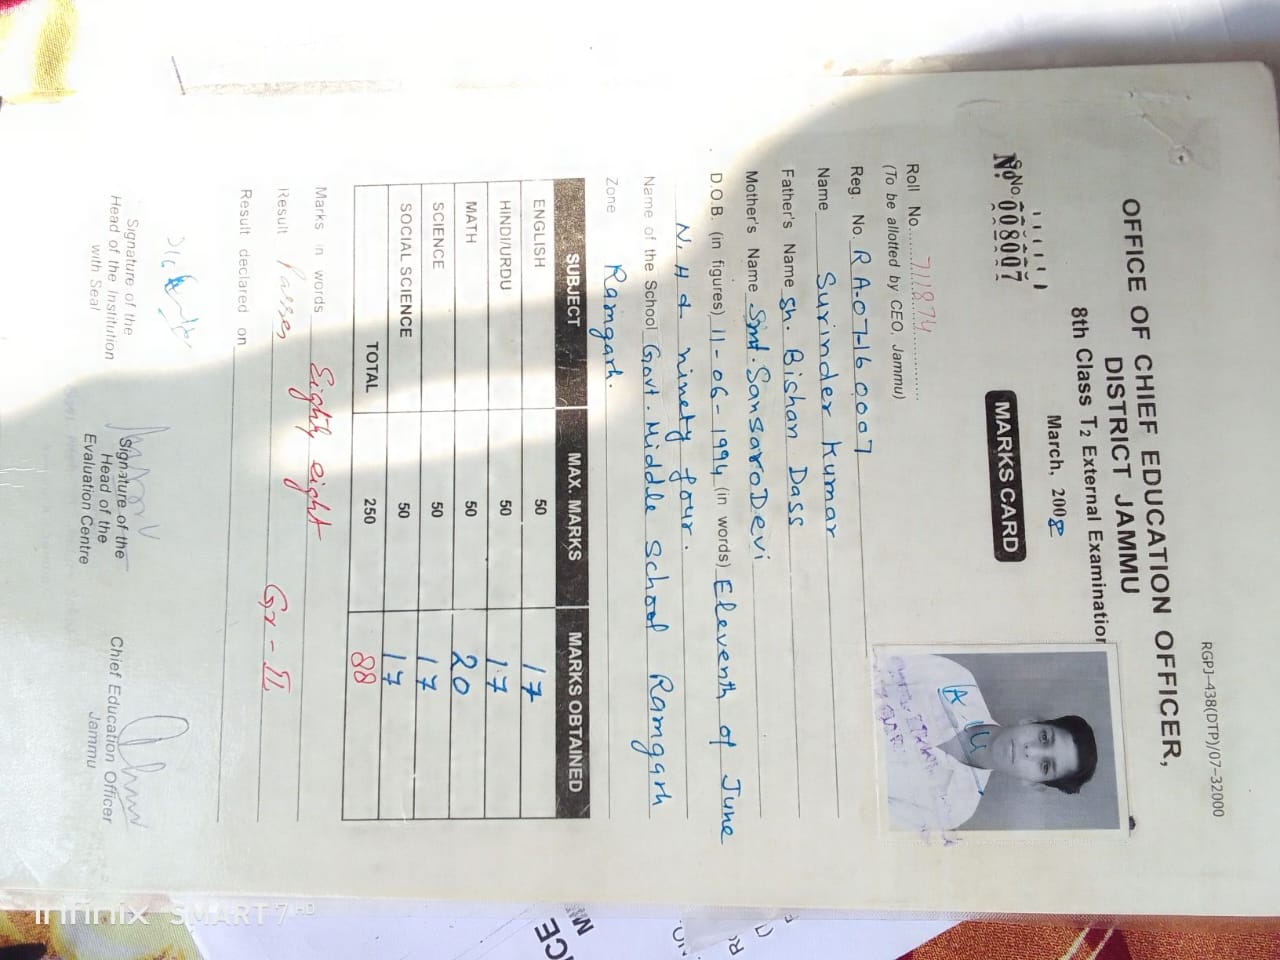 RGPJ-438(DTP)/07-32000
OFFICE OF CHIEF EDUCATION OFFICER,
DISTRICT JAMMU
8th Class T2 External Examination
March, 2008
S.No.
No 008007
MARKS CARD
Roll No. 711874
(To be allotted by CEO, Jammu)
Reg. No. RA-07-160007
Name Surinder Kumar
Father's Name Sh. Bishan Dass
Mother's Name Smt. Sansaro Devi
D.O.B. (in figures) 11-06-1994 (in words) Eleventh of June
N.H & ninety four.
Name of the School Govt. Middle School Ramgarh
Zone Ramgarh.
SUBJECT MAX. MARKS MARKS OBTAINED
ENGLISH 50 17
HINDI/URDU 50 17
MATH 50 20
SCIENCE 50 17
SOCIAL SCIENCE 50 17
TOTAL 250 88
Marks in words Eighty eight
Result Passes Gr-II
Result declared on
Signature of the
Head of the Institution
with Seal
Signature of the
Head of the
Evaluation Centre
Chief Education Officer
Jammu
Infinix SMART 7 HD